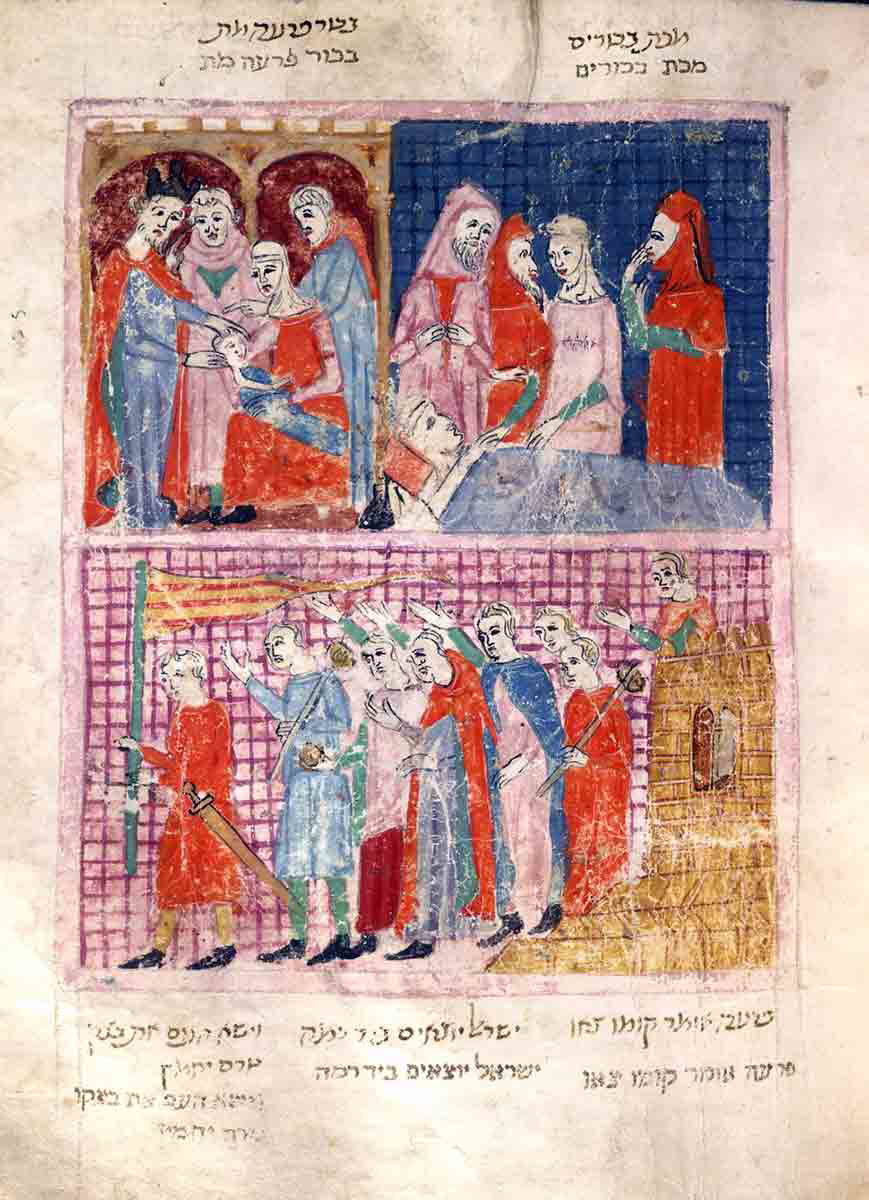 מכת בכורים
מכת בכורים
בכור פרעה מת
בכור פרעה מת
פרעה אומר קומו צאו
פרעה אומר קומו צאו
ישראל יוצאים ביד רמה
ישראל יוצאים ביד רמה
וישא העם את בצקו
טרם יחמץ
וישא העם את בצקו
טרם יחמץ